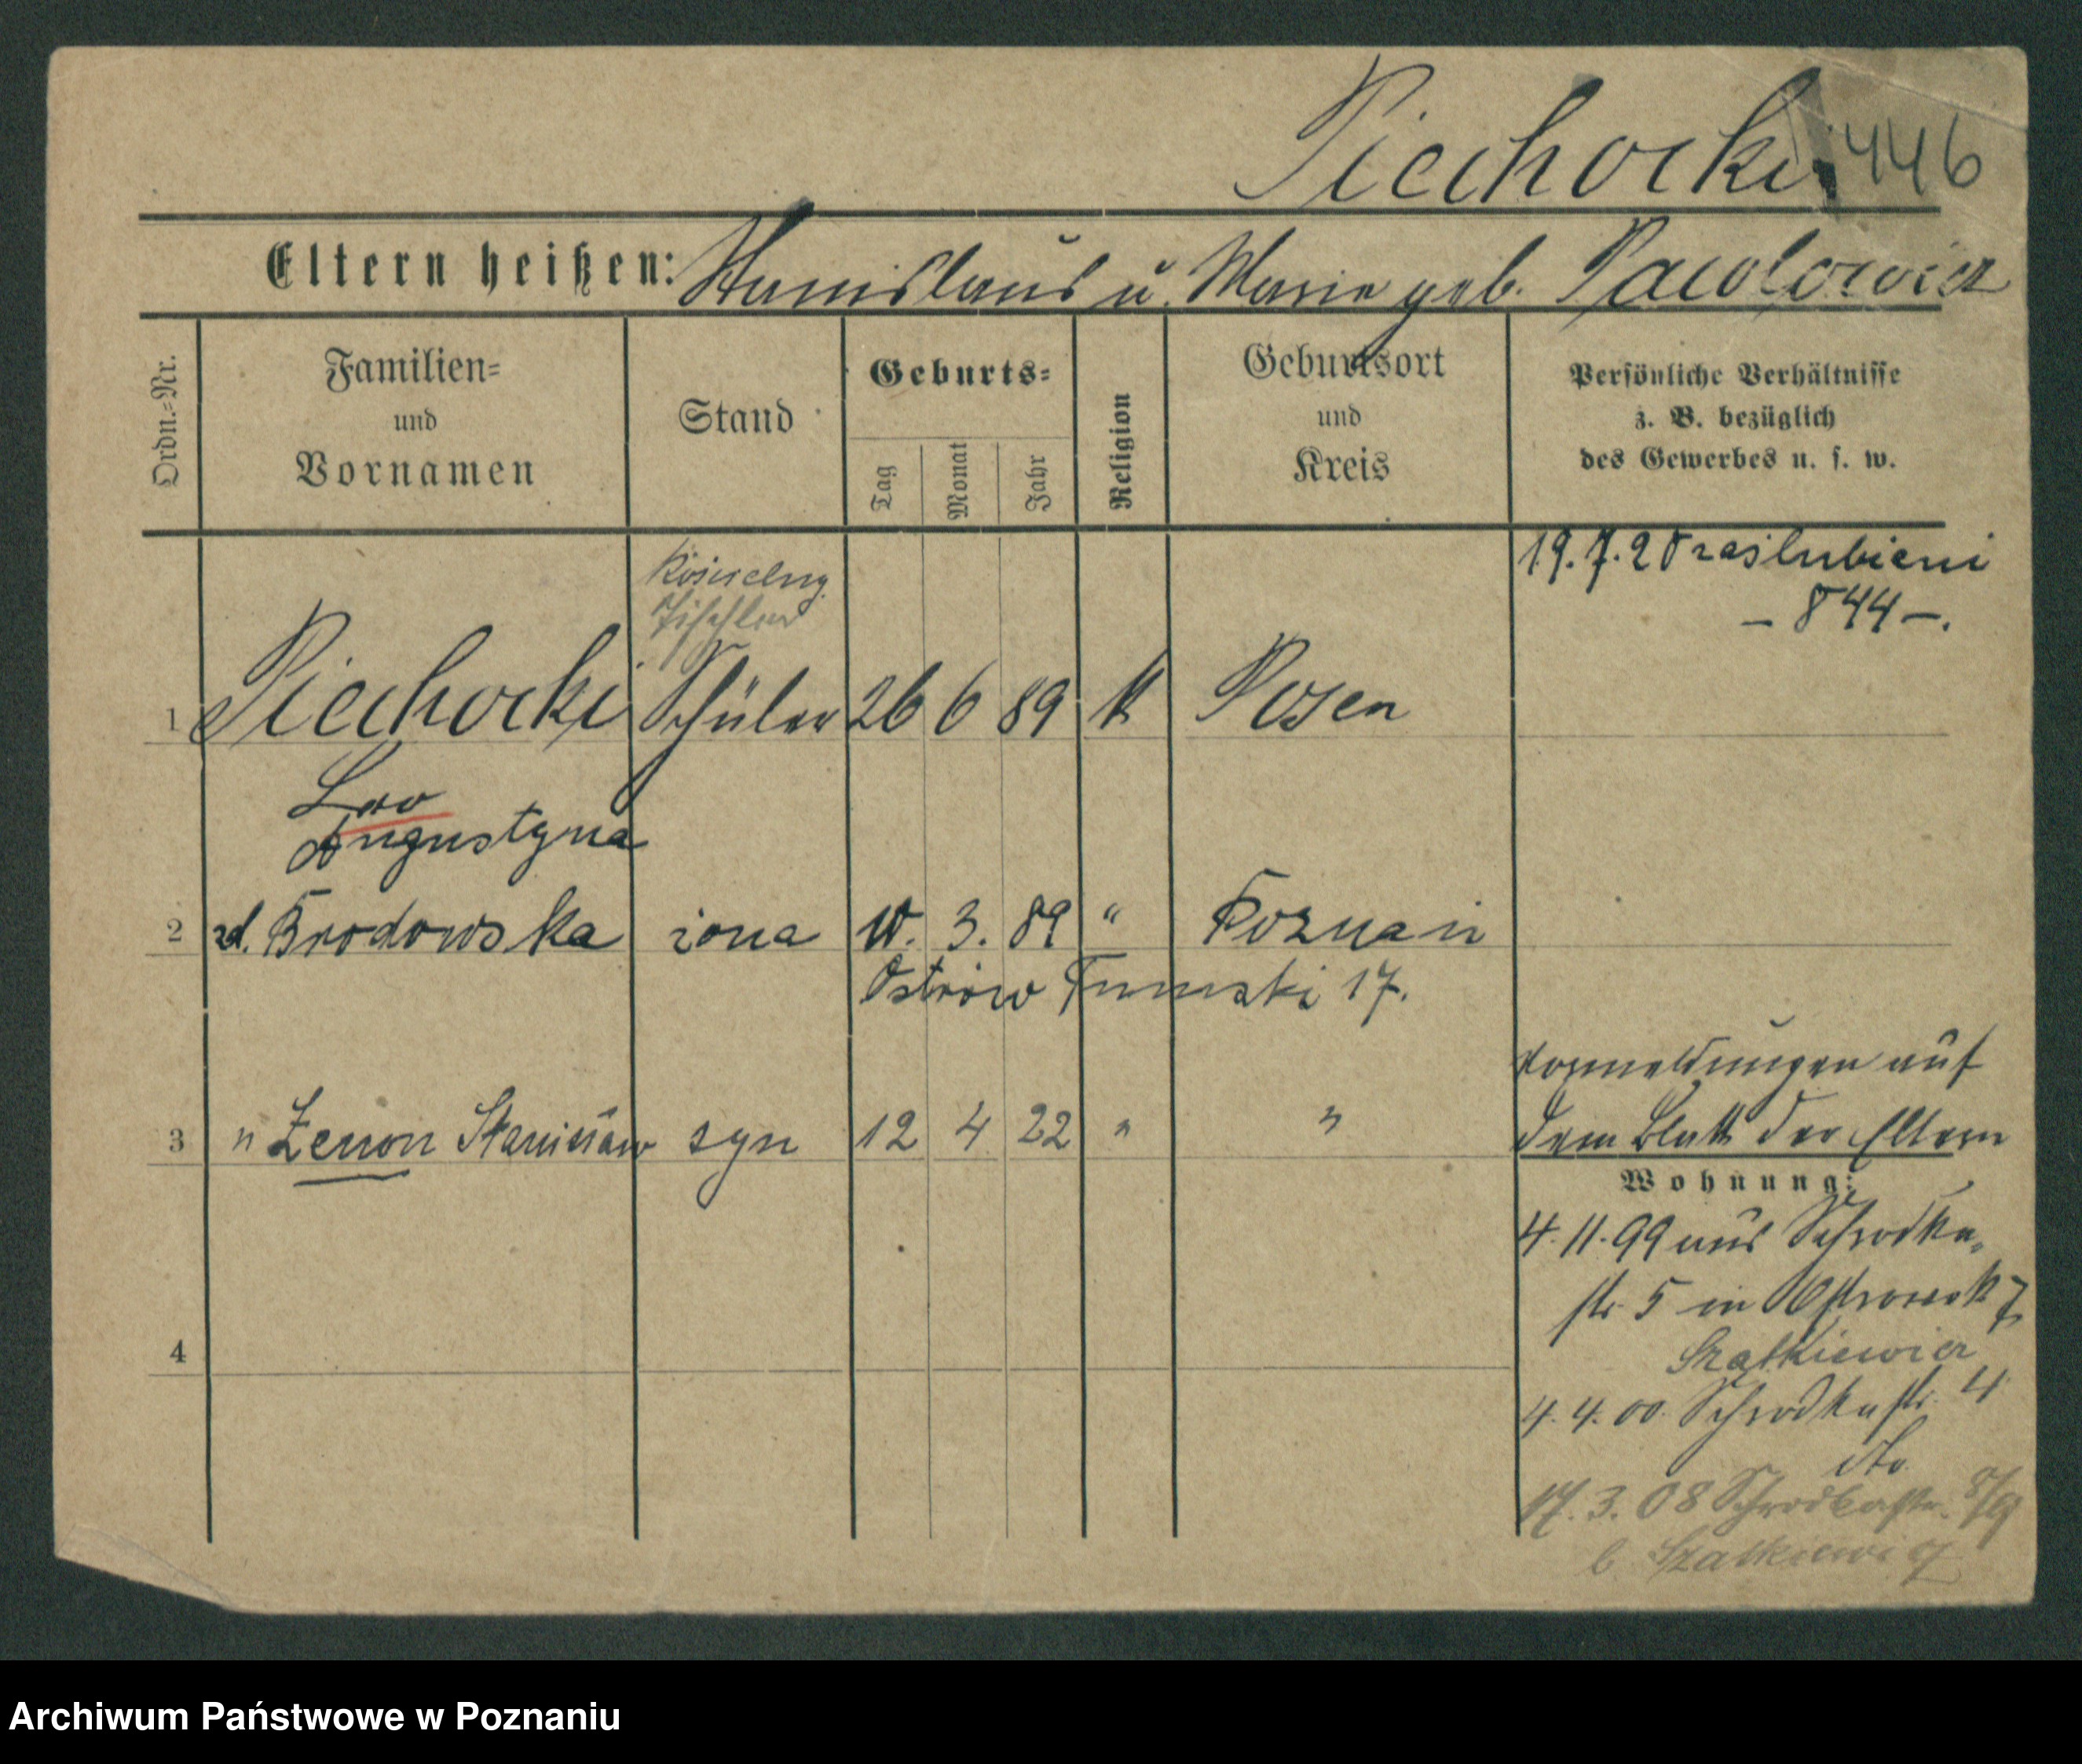 Piechocki 446
Eltern heißen: Stanislaus u. Marie geb. Pawolowicz
Ordn.=Nr.
Familien=
und
Vornamen
Stand
Geburts=
Tag
Monat
Jahr
Religion
Geburtsort
und
Kreis
Persönliche Verhältnisse
z. B. bezüglich
des Gewerbes u. s. w.
19.7.20 zaślubieni
– 844 –.
Tischler
1 Piechocki Schüler 26 6 89 k Posen
Leo
Augustyna
2 zd. Brodowska żona 10. 3. 89 " Poznań
Ostrów Tumski 17.
Vormeldungen auf
dem Blatt der Eltern
3 " Zenon Stanisław syn 12 4 22 " "
Wohnung:
4.11.99 aus Schrodka-
str 5 in Ostrowek 7
Szatkiewicz
4.4.00. Schrodkastr. 4
dto
4
17.3.08 Schrodkastr. 8/9
b. Szatkiewicz
Archiwum Państwowe w Poznaniu